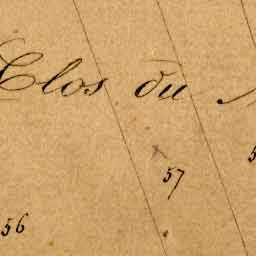 Clos du
57
56